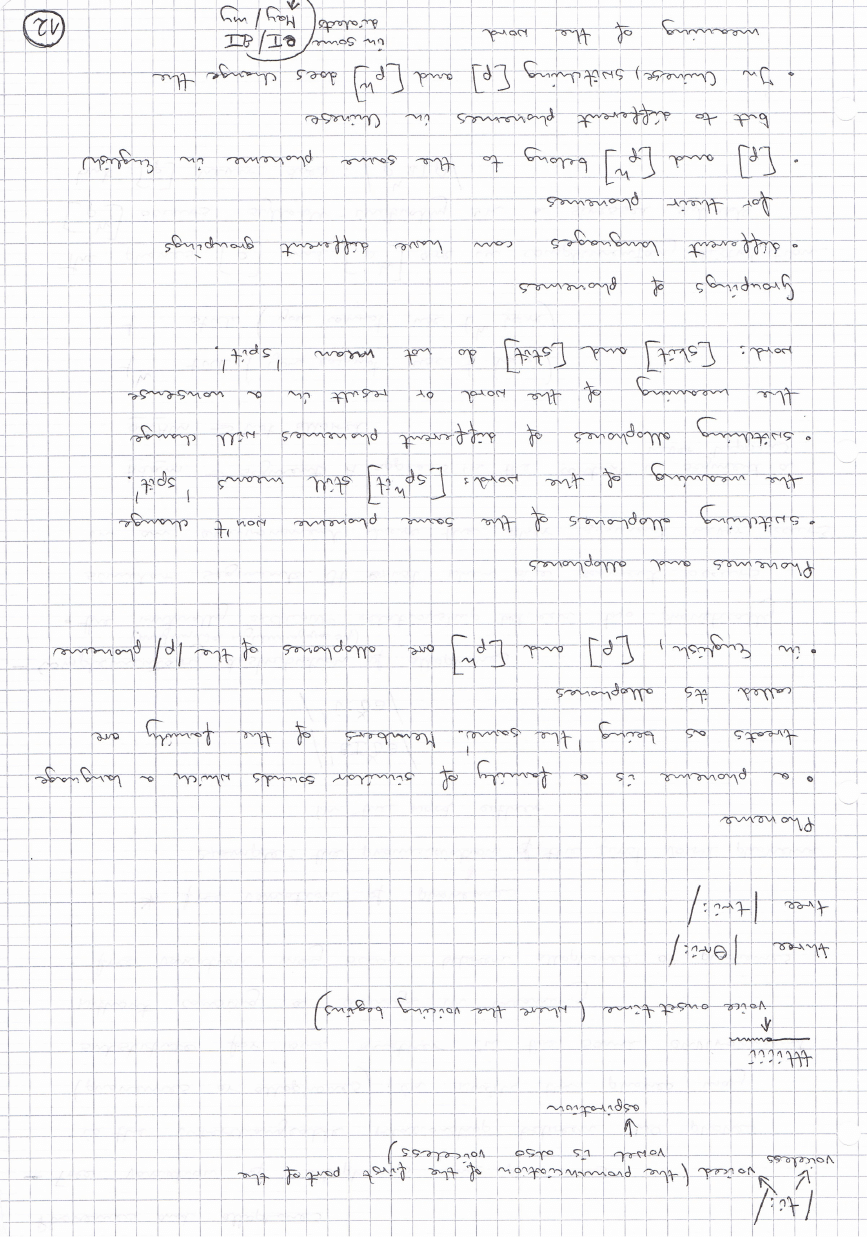 /ti:/
voiceless voiced (the pronunciation of the first part of the
vowel is also voiceless)
aspiration
tttiiii
voice onset time (where the voicing begins)
three /θri:/
tree /tri:/
Phoneme
• a phoneme is a family of similar sounds which a language
treats as being 'the same'. Members of the family are
called its allophones
• in English, [p] and [pʰ] are allophones of the /p/ phoneme
Phonemes and allophones
• switching allophones of the same phoneme won't change
the meaning of the word: [spʰit] still means 'spit'.
• switching allophones of different phonemes will change
the meaning of the word or result in a nonsense
word: [skit] and [stit] do not mean 'spit'.
Groupings of phonemes
• different languages can have different groupings
for their phonemes
• [p] and [pʰ] belong to the same phoneme in English
but to different phonemes in Chinese
• In Chinese, switching [p] and [pʰ] does change the
meaning of the word
in some eI/aI
dialects May/my
12